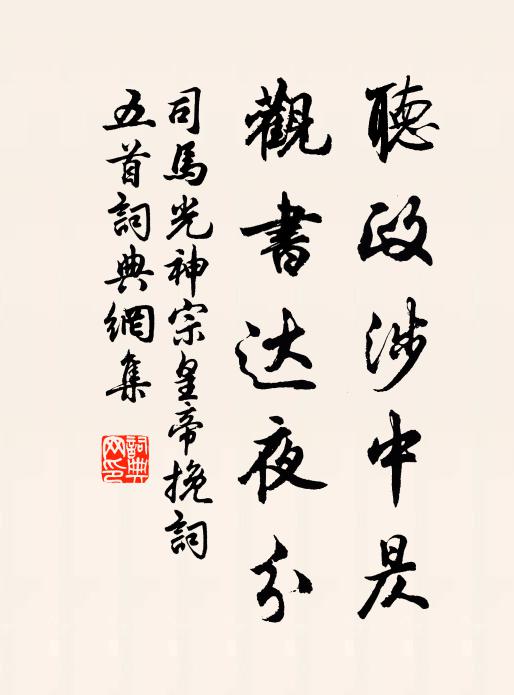 聽政涉中昃
觀書达夜分
司馬光神宗皇帝挽詞
五首詞典網集
詞典
网印